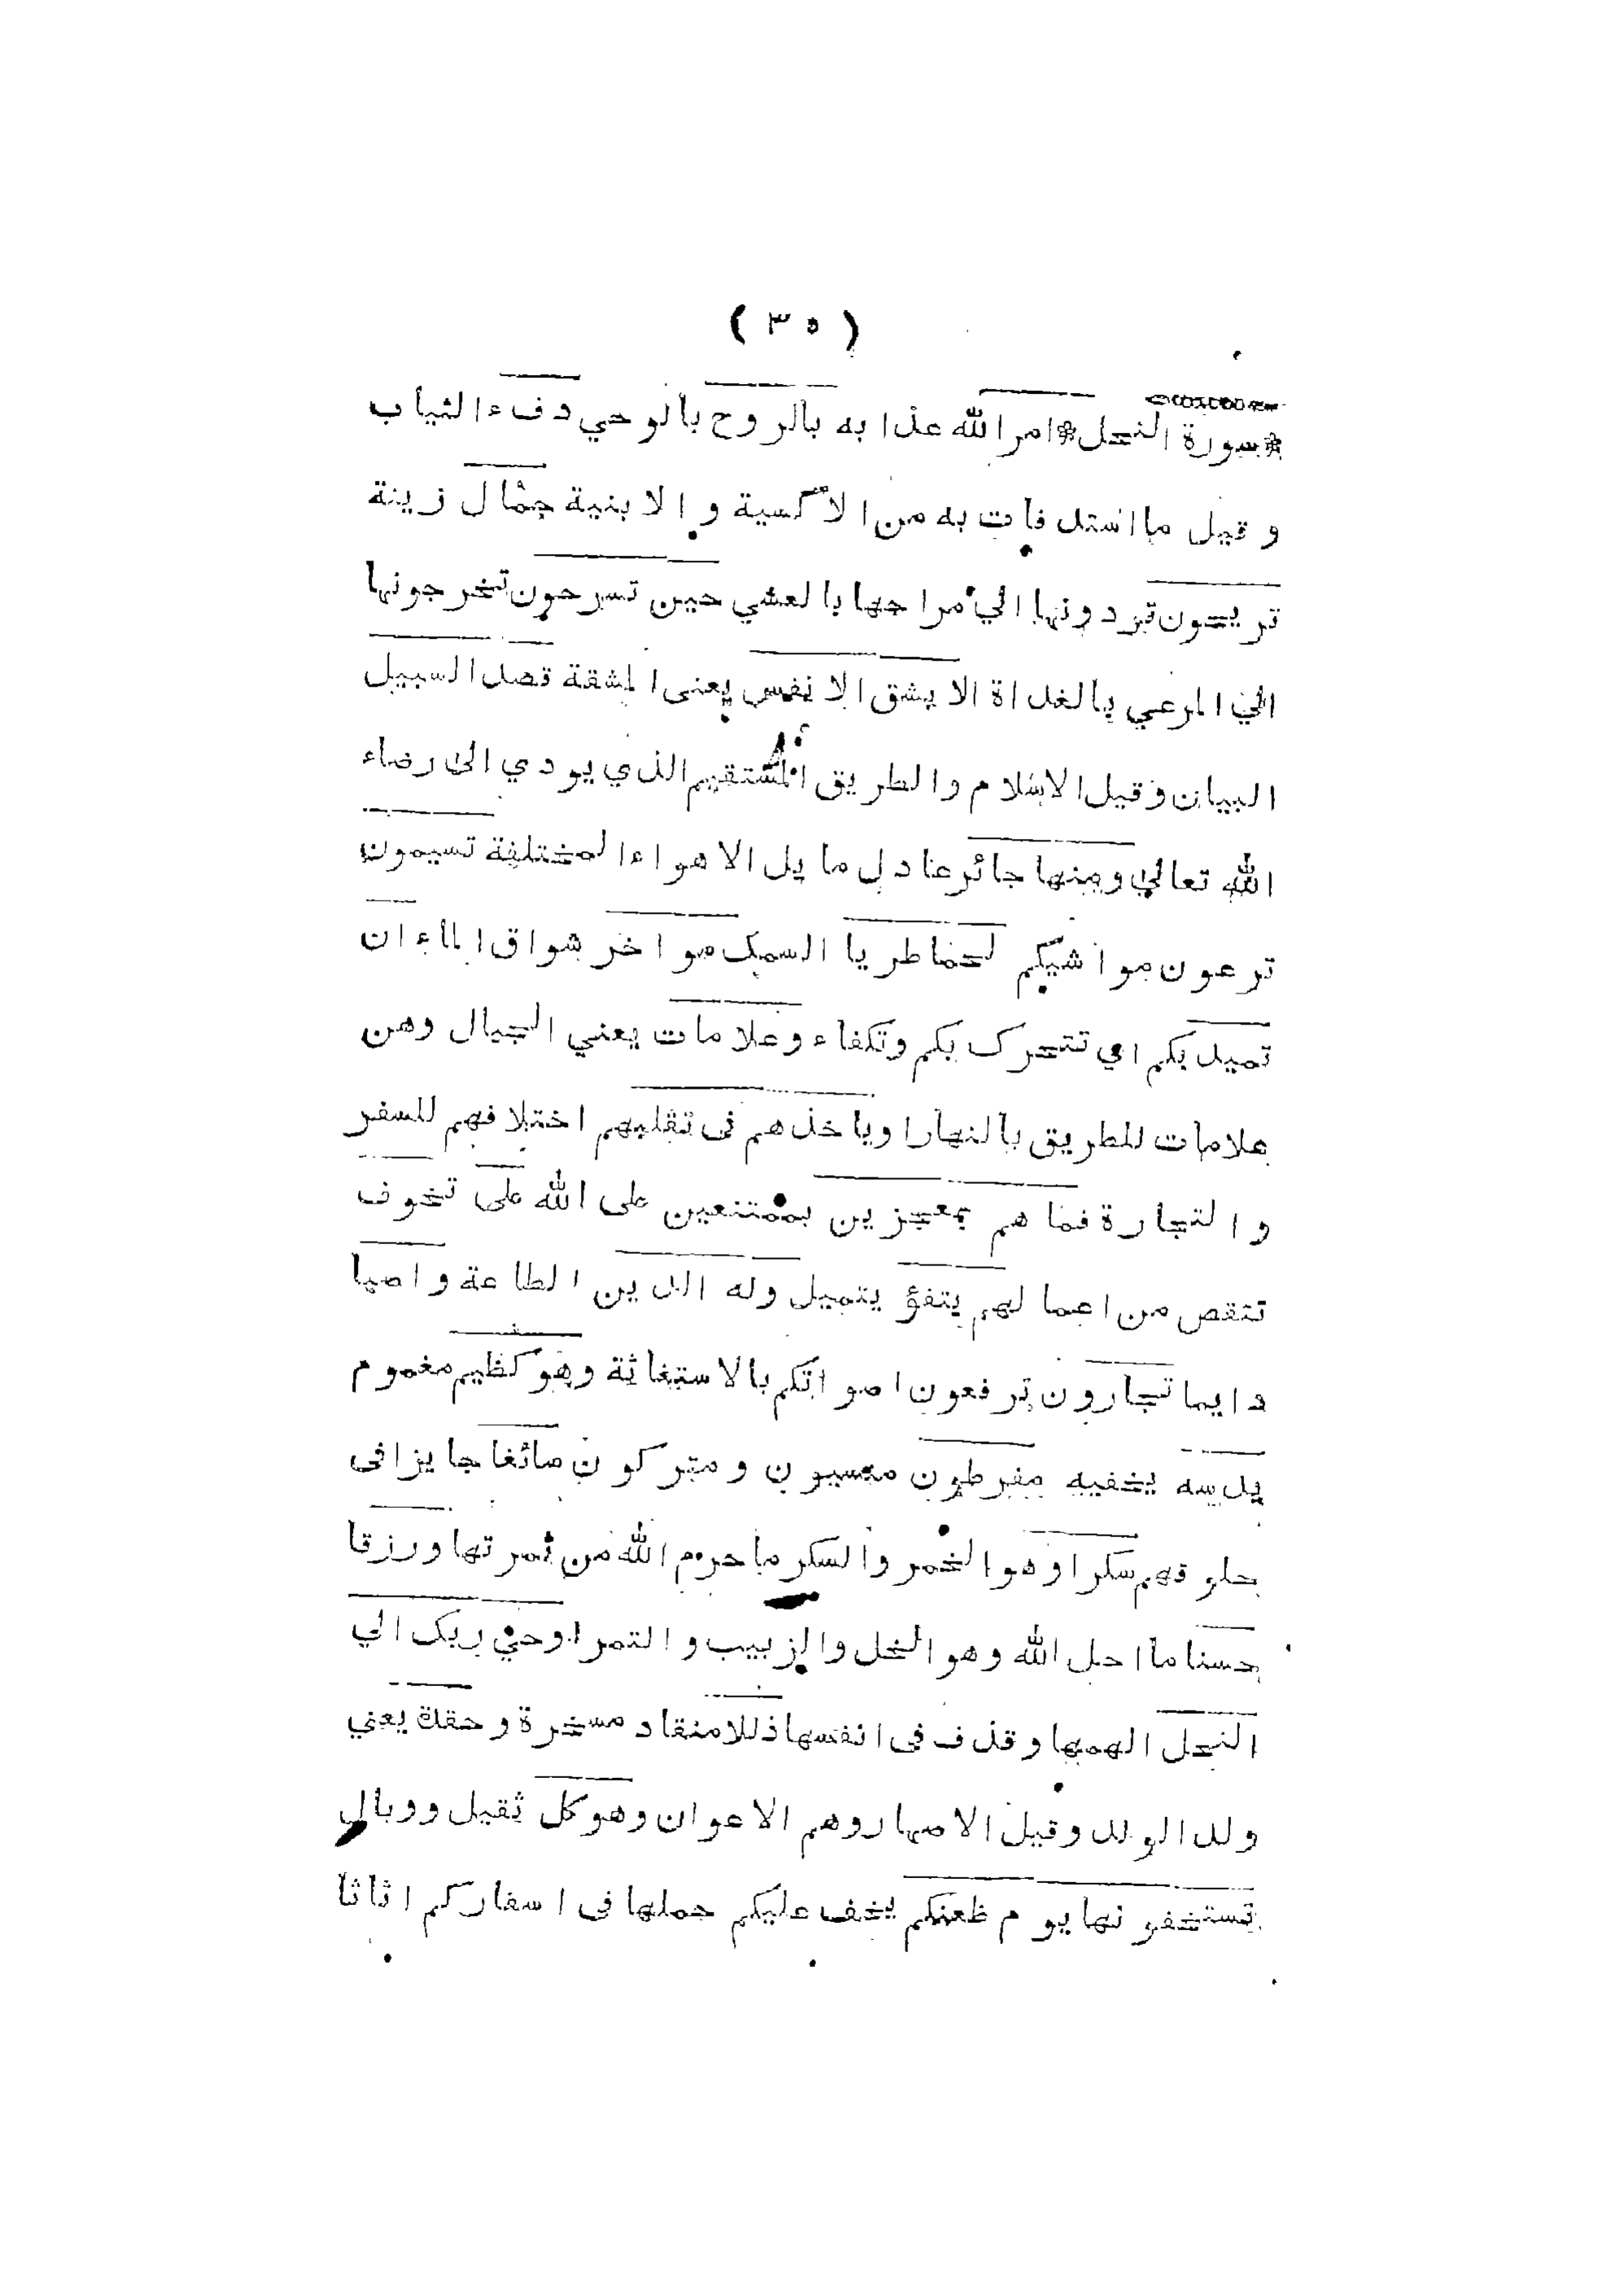 ( ٣٥ )
❁سورة النحل❁امر الله عذابه بالروح بالوحي دفء الثياب
وقيل ما استدفات به من الاكسية والابنية جمال زينة
تريحون تردونها الي مراحها بالعشي حين تسرحون تخرجونها
الي المرعي بالغداة الا بشق الانفس يعنى المشقة قصد السبيل
البيان وقيل الاسلام والطريق المستقيم الذي يودي الى رضاء
الله تعالي ومنها جائر عادل مايل الاهواء المختلفة تسيمون
ترعون مواشيكم لحماطريا السمك مواخر شواق الماء ان
تميد بكم اي تتحرك بكم وتكفاء وعلامات يعني الجبال وهن
علامات للطريق بالنهار او ياخذهم فى تقلبهم اختلافهم للسفر
والتجارة فما هم بمعجزين بممتنعين على الله على تخوف
تنقص من اعمالهم يتفؤ يتميل وله الدين الطاعة واصبا
دايما تجارون ترفعون اصواتكم بالاستغاثة وهو كظيم مغموم
يدسه يخفيه مفرطون منسيون ومتركون سائغا جايزا فى
حلوقهم سكرا وهو الخمر والسكر ما حرم الله من ثمرتها ورزقا
حسنا ما احل الله وهو الخل والزبيب والتمر اوحي ربك الي
النحل الهمها وقذف فى انفسها ذللا منقاد مسخرة وحفدة يعني
ولد الولد وقيل الاصهار وهم الاعوان وهو كل ثقيل ووبال
تستخفونها يوم ظعنكم يخف عليكم حملها فى اسفاركم اثاثا